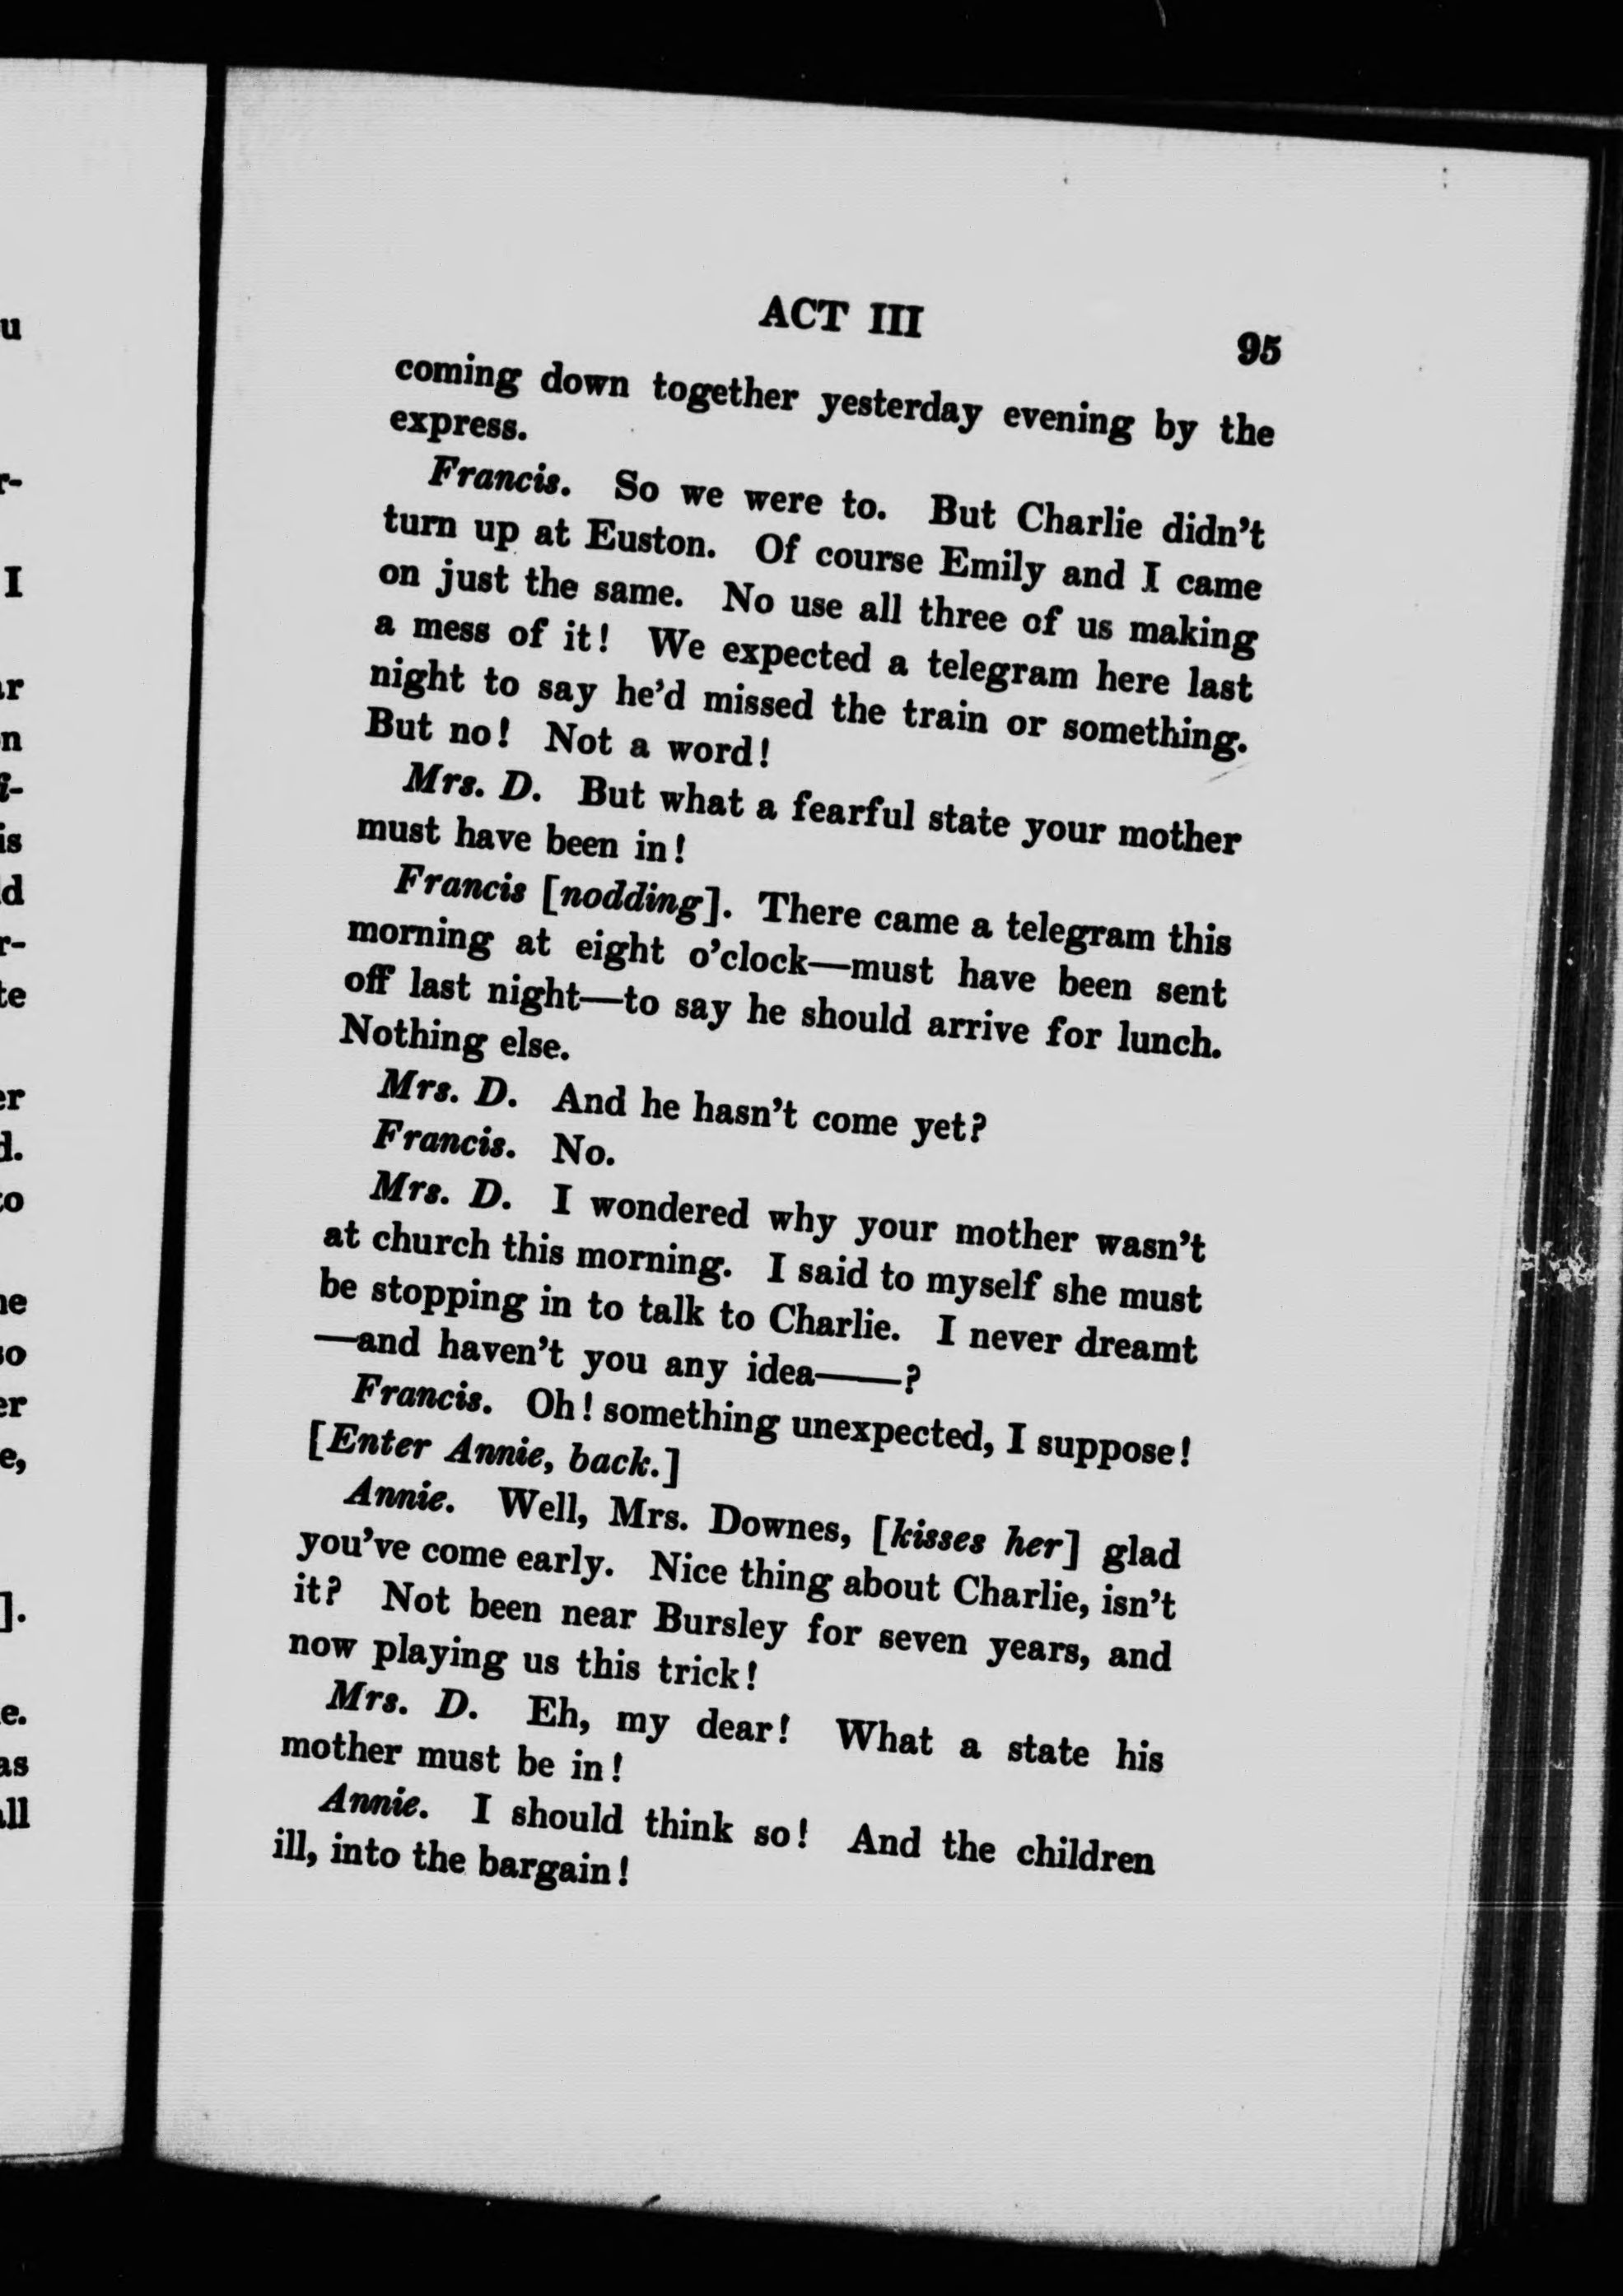 ACT III
95
coming down together yesterday evening by the
express.
Francis. So we were to. But Charlie didn't
turn up at Euston. Of course Emily and I came
on just the same. No use all three of us making
a mess of it! We expected a telegram here last
night to say he'd missed the train or something.
But no! Not a word!
Mrs. D. But what a fearful state your mother
must have been in!
Francis [nodding]. There came a telegram this
morning at eight o'clock—must have been sent
off last night—to say he should arrive for lunch.
Nothing else.
Mrs. D. And he hasn't come yet?
Francis. No.
Mrs. D. I wondered why your mother wasn't
at church this morning. I said to myself she must
be stopping in to talk to Charlie. I never dreamt
—and haven't you any idea——?
Francis. Oh! something unexpected, I suppose!
[Enter Annie, back.]
Annie. Well, Mrs. Downes, [kisses her] glad
you've come early. Nice thing about Charlie, isn't
it? Not been near Bursley for seven years, and
now playing us this trick!
Mrs. D. Eh, my dear! What a state his
mother must be in!
Annie. I should think so! And the children
ill, into the bargain!